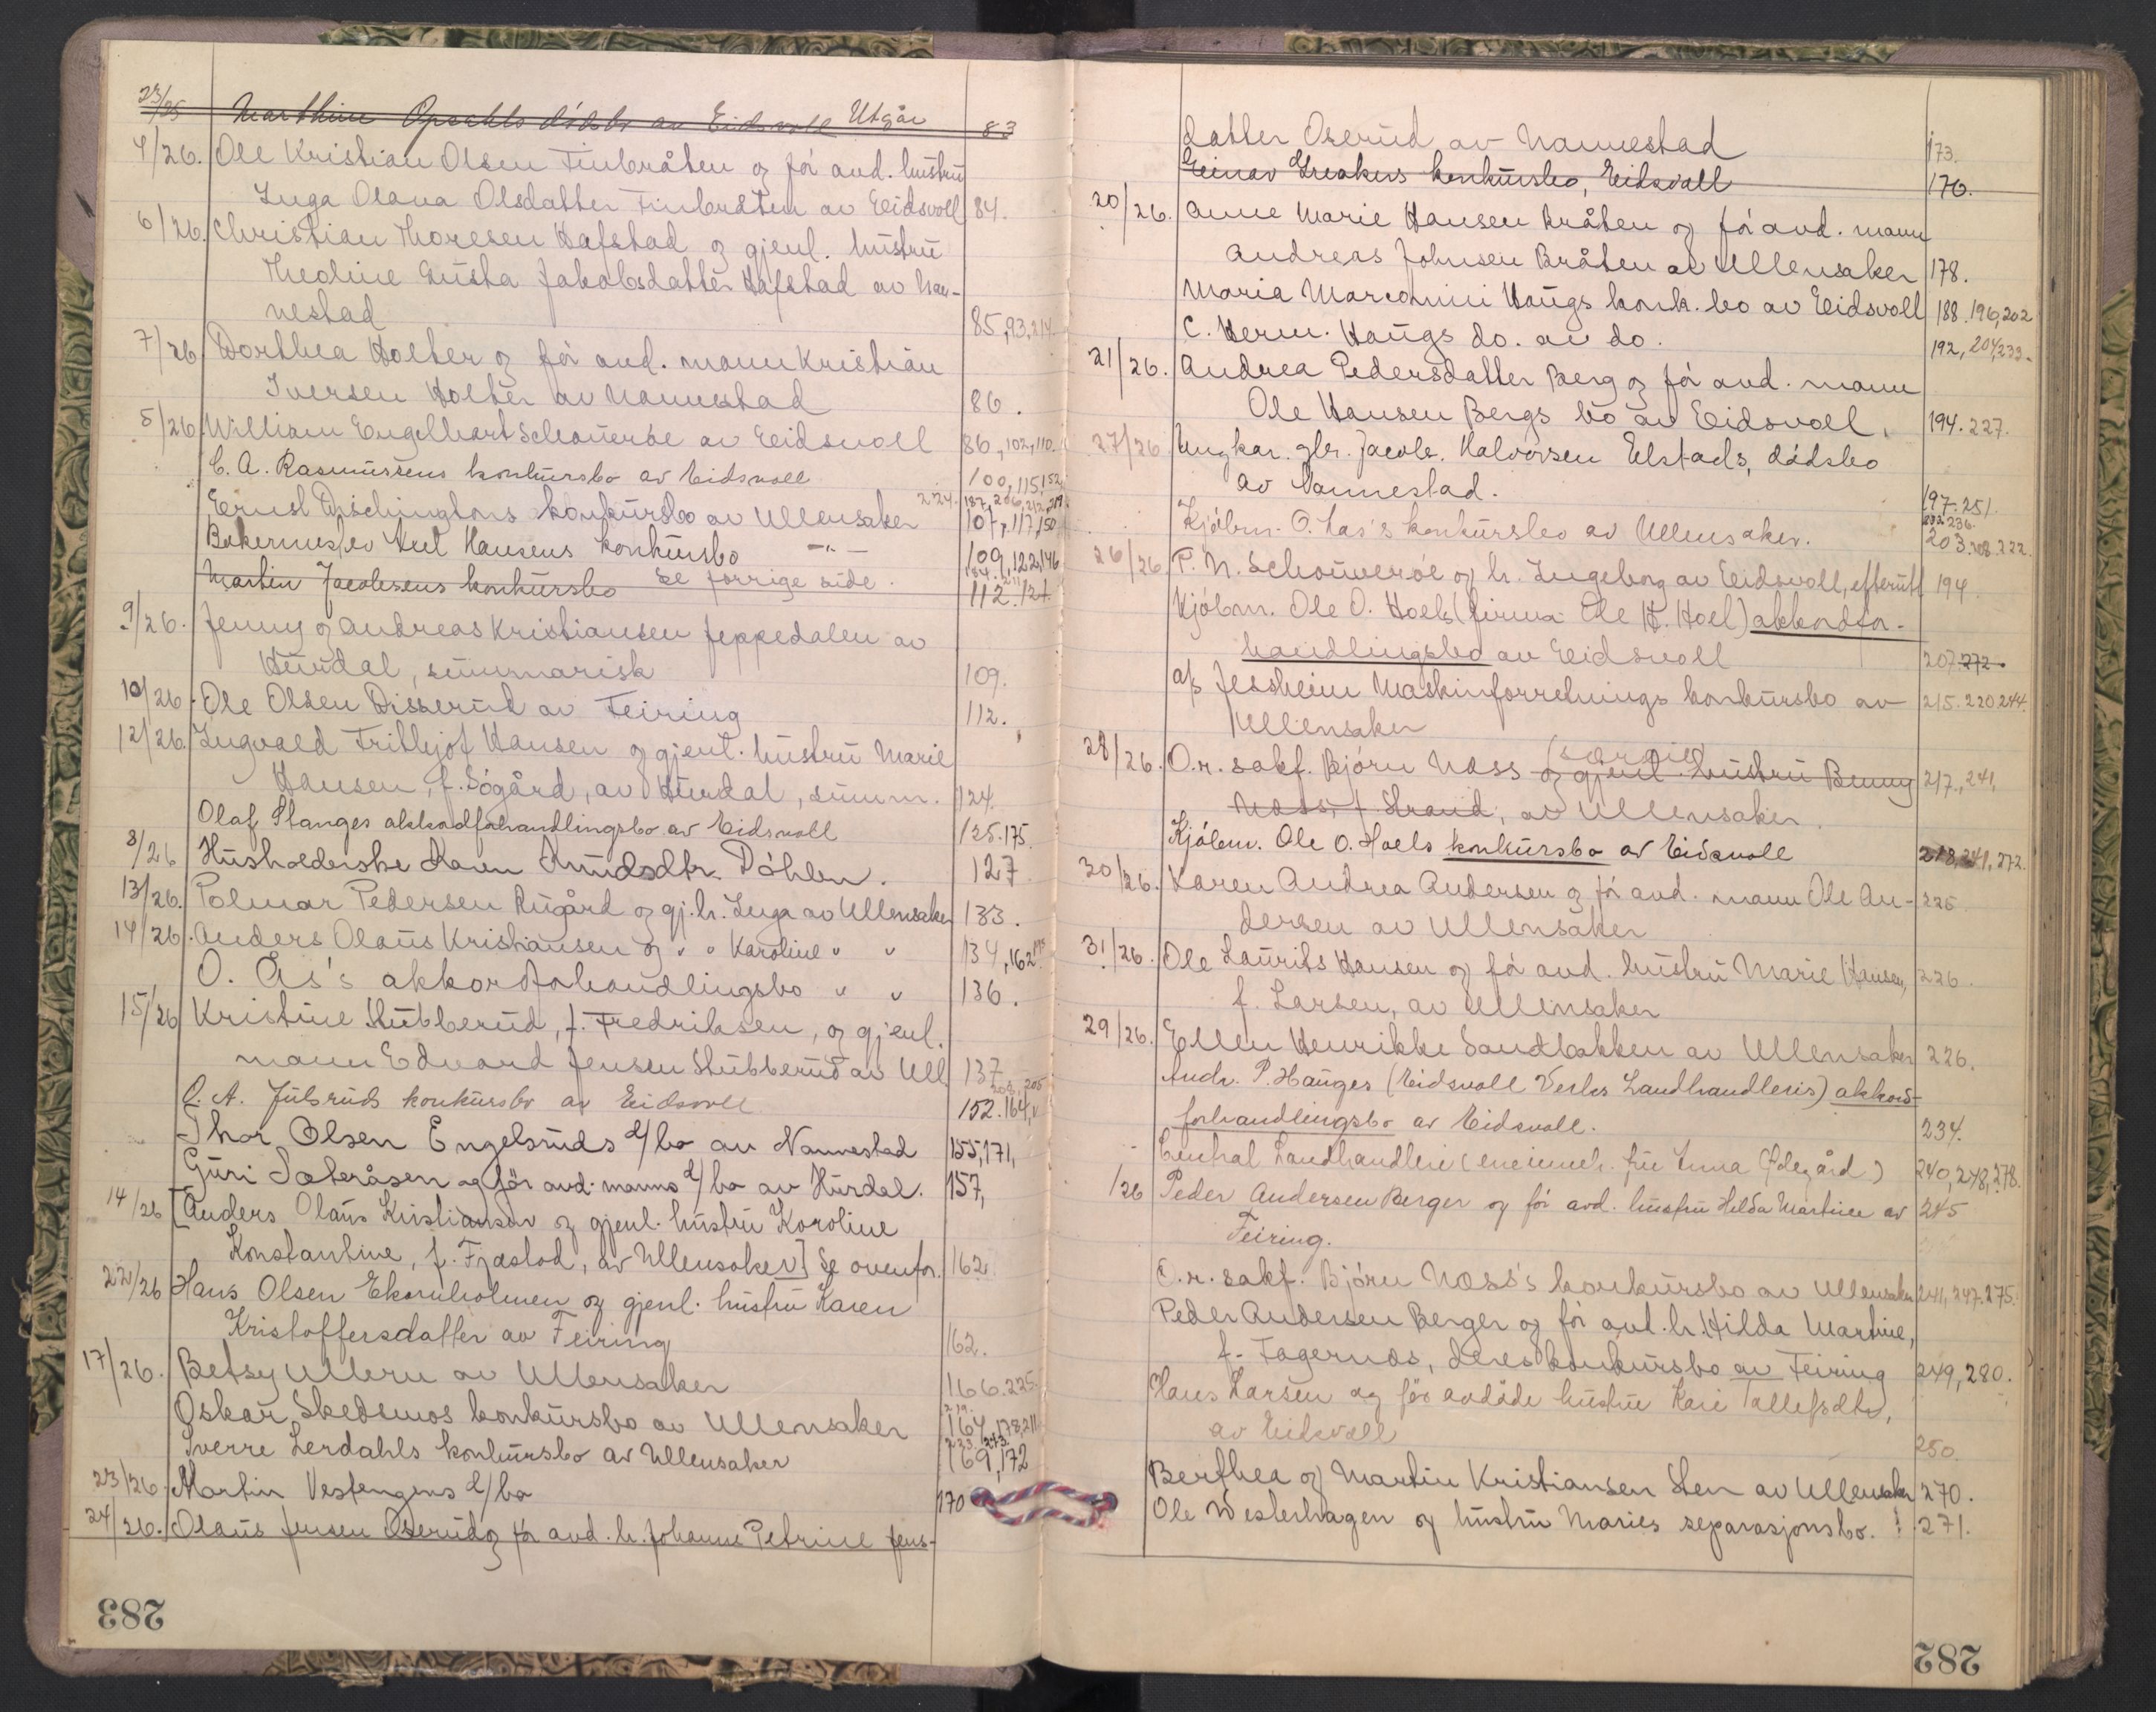 23/25 Marthine Opsahls dödsbo av Eidsvoll Utgår 83
4/26. Ole Kristian Olsen Finbråten og för avd. hustru
Inga Olava Olsdatter Finbråten av Eidsvoll 84.
6/26. Christian Thoresen Hafstad og gjenl. hustru
Theoline Gusta Jakobsdatter Hafstad av Nan-
nestad 85, 93, 214.
7/26 Dorthea Holter og för avd. mann Kristian
Iversen Holter av Nannestad 86.
5/26. William Engelhart Schouveröe av Eidsvoll 86, 102, 110.
C. A. Rasmussens konkursbo av Eidsvoll 100, 115, 152,
Ernst Dischingtons konkursbo av Ullensaker 224. 187, 206, 212, 219
107, 117, 150
Bakermester Hansens konkursbo —"— 109, 122, 146
Martin Jacobsens konkursbo se forrige side. 112. 127.
9/26. Jenny og Andreas Kristiansen Jeppedalen av
Hurdal, summarisk 109.
10/26. Ole Olsen Disserud av Feiring 112.
12/26. Ingvald Frithjof Hansen og gjenl. hustru Marie
Hansen, f. Sögård, av Hurdal, summ. 124.
Olaf Stanges akkordforhandlingsbo av Eidsvoll 125. 175.
8/26 Husholderske Karen Amundsdtr. Döhlen. 127
13/26. Polmar Pedersen Rugård og gj. h. Inga av Ullensaker 133.
14/26. Anders Olaus Kristiansen og " " Karoline " " 134, 162
O. Ås's akkordforhandlingsbo " " 136.
15/26 Kristine Stubberud, f. Fredriksen, og gjenl.
mann Edvard Jensen Stubberud av Ull 137
O. A. Julsruds konkursbo av Eidsvoll 152. 164,
Thor Olsen Engelsruds d/bo av Nannestad 155, 171,
Guri Sæteråsen og för avd. manns d/bo av Hurdal. 157,
14/26 [Anders Olaus Kristiansen og gjenl. hustru Karoline
Konstantine, f. Fjæstad, av Ullensaker] Se ovenfor. 162
22/26 Hans Olsen Ekornholmen og gjenl. hustru Karen
Kristoffersdatter av Feiring 162.
17/26. Betsy Ullern av Ullensaker 166. 225.
Oskar Skedsmos konkursbo av Ullensaker 164, 178, 211
Sverre Lerdahls konkursbo av Ullensaker 169, 172
23/26. Martin Vestengens d/bo 170
24/26. Olaus Jensen Oserud og för avd. h. Johanne Petrine Jens-
283
datter Oserud av Nannestad 173.
Einar Greakers konkursbo, Eidsvoll 176.
20/26. Anne Marie Hansen Bråten og för avd. mann
Andreas Johnsen Bråten av Ullensaker 178.
Maria Marconini Haugs konk. bo av Eidsvoll 188. 196, 202
C. Herm. Haugs do. av do. 192, 204, 233.
21/26. Andrea Pedersdatter Berg og för avd. mann
Ole Hansen Bergs bo av Eidsvoll. 194. 227.
27/26 Ungkar. gbr. Jacob Halvorsen Elstads, dödsbo
av Nannestad. 197. 251.
Kjöbm. O. Ås's konkursbo av Ullensaker. 203. 208. 222.
26/26 P. N. Schouveröe og h. Ingeborg av Eidsvoll, efterutl 194.
Kjöbm. Ole O. Hoels (firma Ole H. Hoel) akkordfor-
handlingsbo av Eidsvoll 207. 272.
a/s Jessheim Maskinforretnings konkursbo av 215. 220 244.
Ullensaker
28/26. O.r. sakf. Björn Næss (særeie) og gjenl. hustru Benny 217., 241,
Næss, f. Strand, av Ullensaker.
Kjöbm. Ole O. Hoels konkursbo av Eidsvoll 218, 241, 272.
30/26. Karen Andrea Andersen og för avd. mann Ole An- 225
dersen av Ullensaker
31/26. Ole Laurits Hansen og för avd. hustru Marie Hansen, 226.
f. Larsen, av Ullensaker
29/26. Ellen Henrikke Sandbakken av Ullensaker 226.
Andr. P. Hauges (Eidsvoll Verks Landhandleris) akkord-
forhandlingsbo av Eidsvoll. 234.
Central Landhandleri (eneinneh. fru Anna Ödegård) 240, 248, 278.
/26 Peder Andersen Berger og för avd. hustru Hilda Martine av 245
Feiring.
O.r. sakf. Björn Næss's konkursbo av Ullensaker 241, 247. 275.
Peder Andersen Berger og för avd. h. Hilda Martine,
f. Fagernæs, deres konkursbo av Feiring 249, 280.
Hans Larsen og för avdöde hustru Kari Tallefsdtr,
av Eidsvoll 250.
Berthea og Martin Kristiansen Sten av Ullensaker 270.
Ole Westerhagen og hustru Maries separasjonsbo. 271.
282